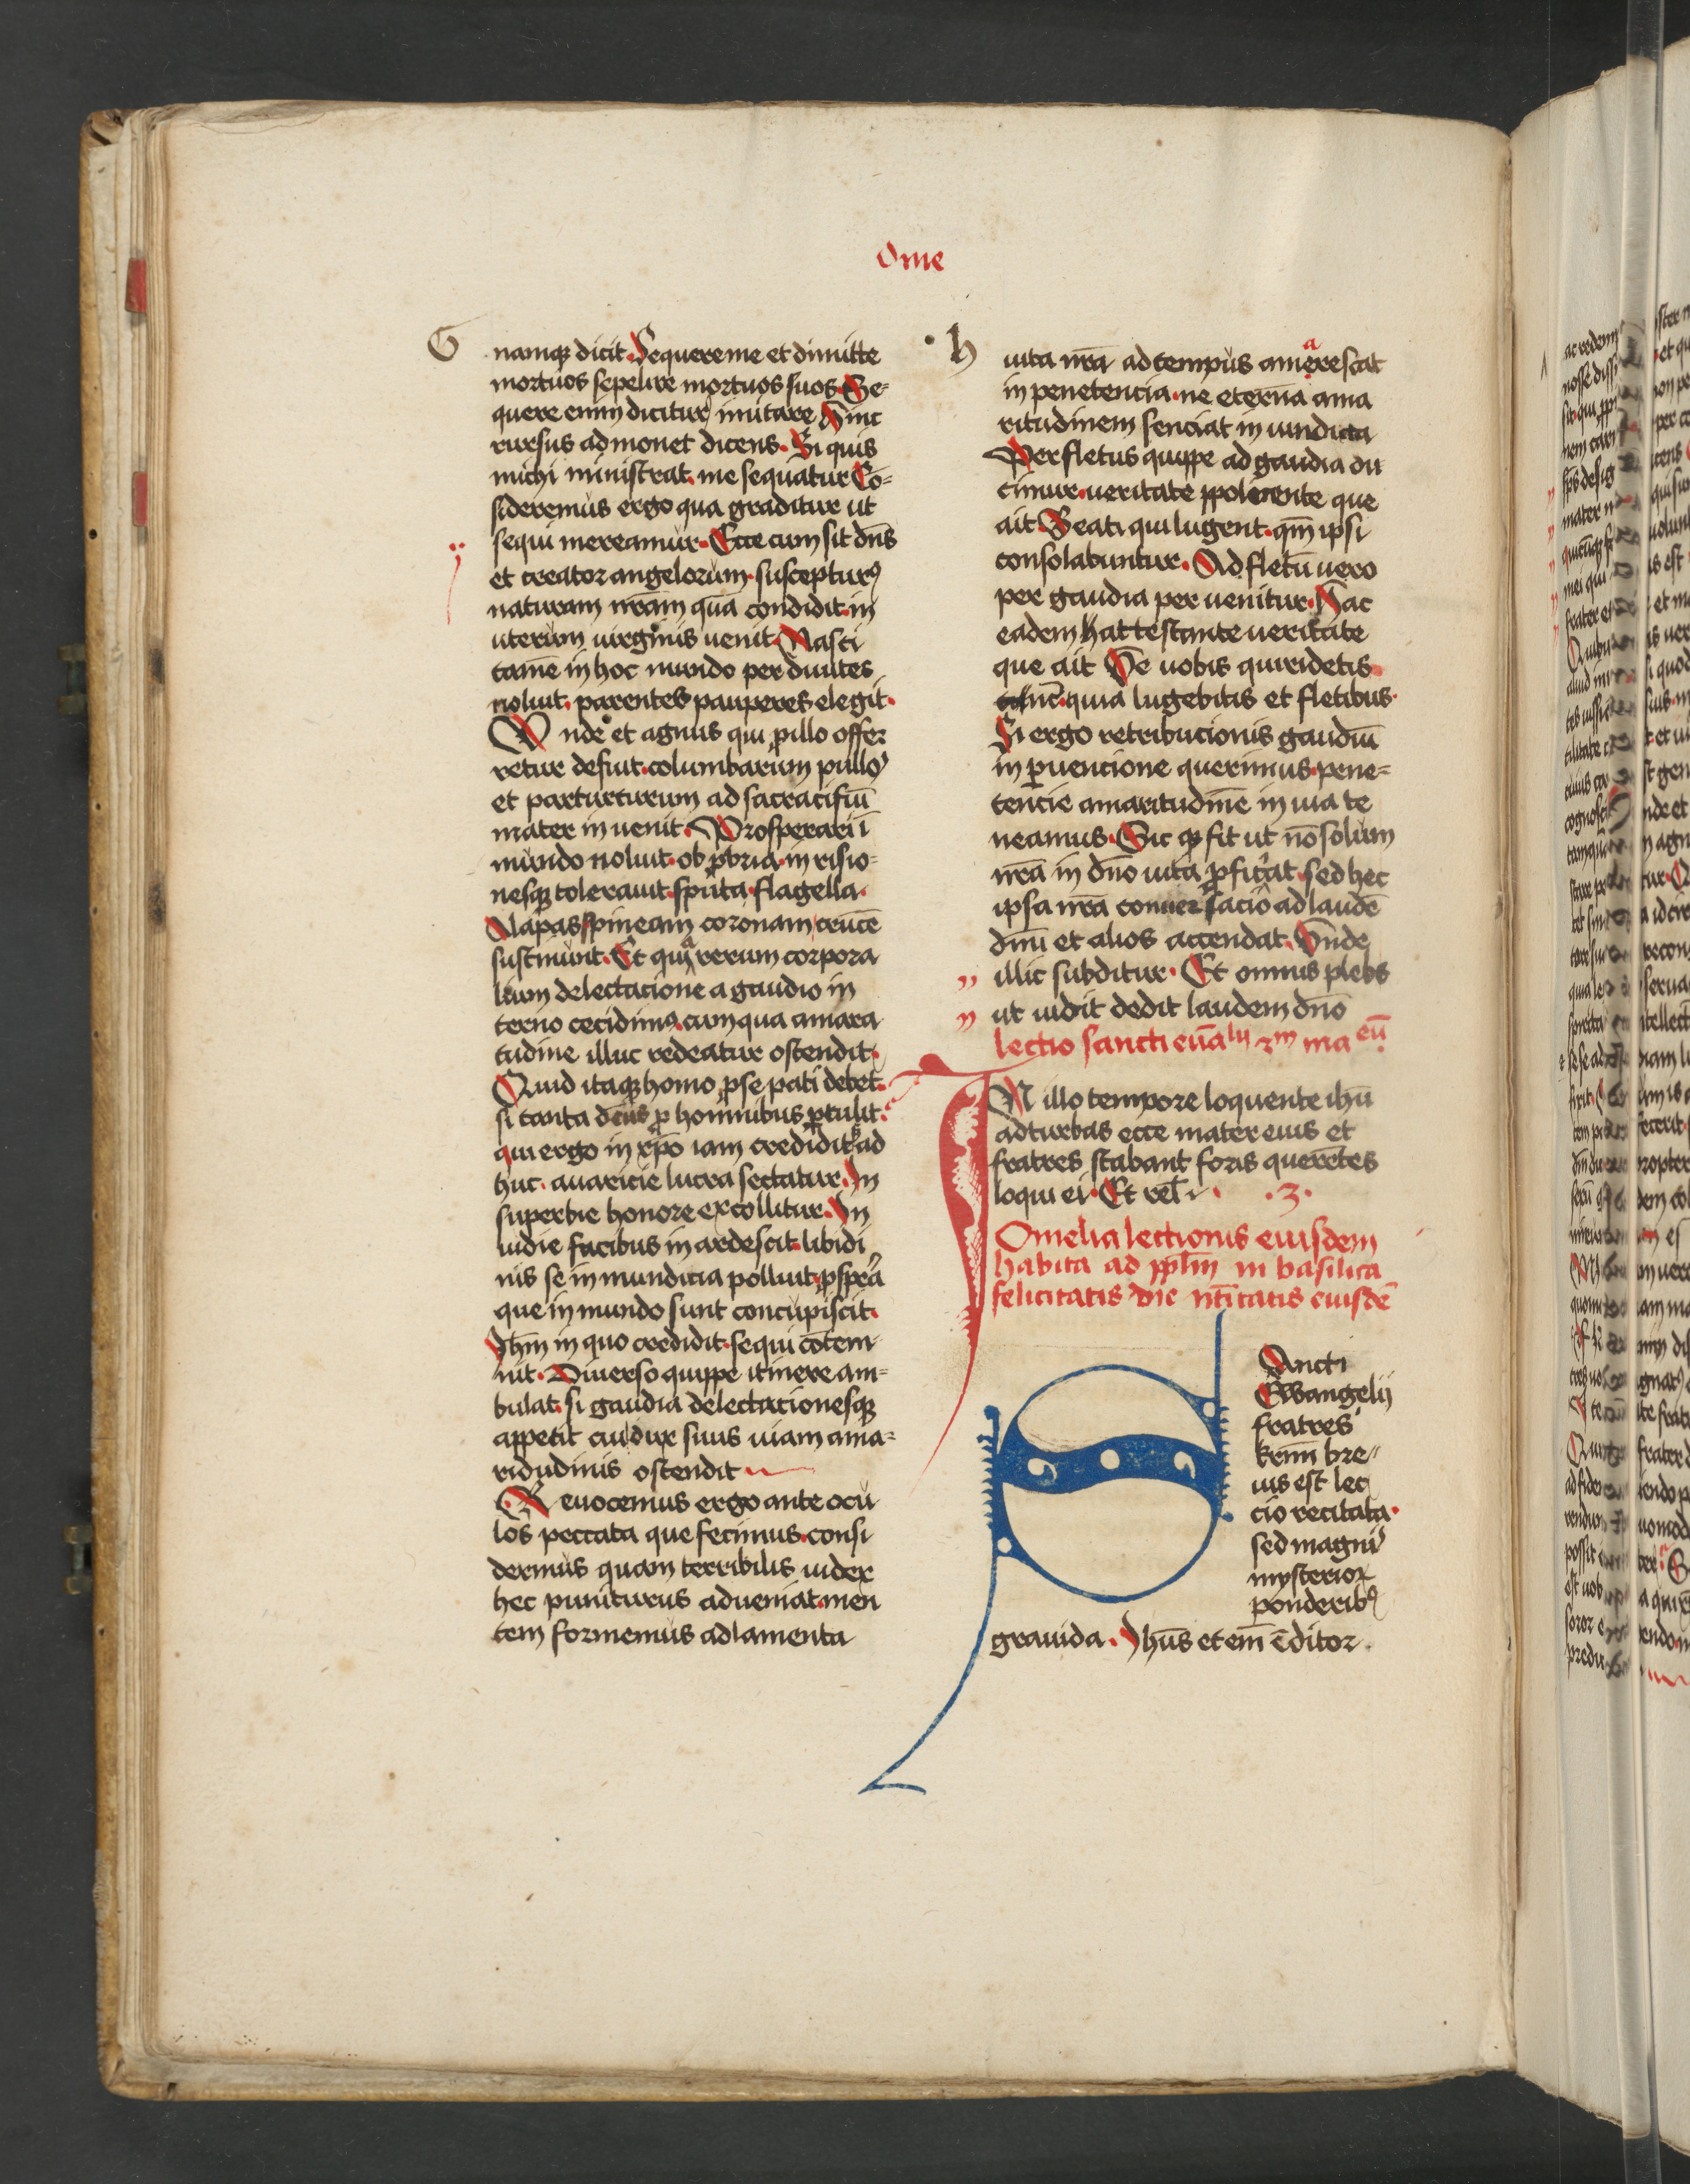 Ome
G
namq₃ dicit. Sequere me et dimitte
mortuos sepelire mortuos suos. Se-
quere enim dicitur imitare. Hinc
rursus admonet dicens. Si quis
michi ministrat. me sequatur. Cō-
sideremus ergo qua graditur ut
sequi mereamur. Ecce cum sit dn̄s
et creator angelorum. suscepturꝰ
naturam nr̄am quā condidit. in
uterum uirginis uenit. Nasci
tamē in hoc mundo per diuites
noluit. parentes pauperes elegit.
Unde et agnus qui ꝓ illo offer
retur defuit. columbarum pullos
et par turturum ad sacracifiū
mater in uenit. Prosperari ī
mundo noluit. obꝓbria. in risio-
nesq₃ tolerauit. sputa. flagella.
Alapas spineam coronam crucē
sustinuit. Et quia rerum corpora
lium delectacione a gaudio in
terno cecidimꝰ. cum qua amara
tudine illuc redeatur ostendit.
Quid itaq₃ homo ꝓ se pati debet.
si tanta deus ꝓ hominibus ꝑtulit.
qui ergo in xp̄o iam credidit sꝫ ad
huc. auaricie lucra sectatur. In
superbie honore ex collitur. In
uidie facibus in ardescit. libidi
nis se in mundicia polluit. ꝓspera
que in mundo sunt concupiscit.
Ihm̄ in quo credidit. sequi cōtem
nit. Diuerso quippe itinere am-
bulat. si gaudia delectacionesq₃
appetit cui dux suus uiam ama-
ridudinis ostendit
Reuocemus ergo ante ocu
los peccata que fecimus. consi
dermus quam terribilis iudex
hec puniturus adueniat. men
tem formemus ad lamenta
h
uita nr̄a ad tempus amarescat
in penetencia. ne eternā ama
ritudinem senciat in uindicta
Per fletus quippe ad gaudia du
cimur. ueritate ppollicente que
ait. Beati qui lugent. qm̄ ipsi
consolabuntur. Ad fletū uero
per gaudia per uenitur. Hac
eadem hac testante ueritate
que ait. Ve uobis qui ridetis
nūc. quia lugebitis et fletibus.
Si ergo retribucionis gaudiū
in ꝑuencione querimus. pene-
tencie amaritudinē in uia te
neamus. Sic q₃ fit ut nō solum
nr̄a in dn̄o uita ꝓficiat. sed hec
ipsa nr̄a conuersacio ad laudē
dn̄i et alios accendat. Vnde
illic subditur. Et omnis plebs
ut uidit dedit laudem dn̄o
lectio sancti euāˡⁱʲ ẜm ma eū
IN illo tempore loquente ihū
ad turbas ecce mater eius et
fratres stabant foris querētes
loqui ei. Et relⁱ. .3.
Omelia lectionis eiusdem
habita ad pplm̄ in basilica
felicitatis die nītatis eiusdē
Sancti
Ewangelij
fratres
kr̄mi bre
uis est lec
cio recitata.
sed magni
mysterioꝝ
ponderibꝰ
grauida. Ihūs etem̄ cōditor.